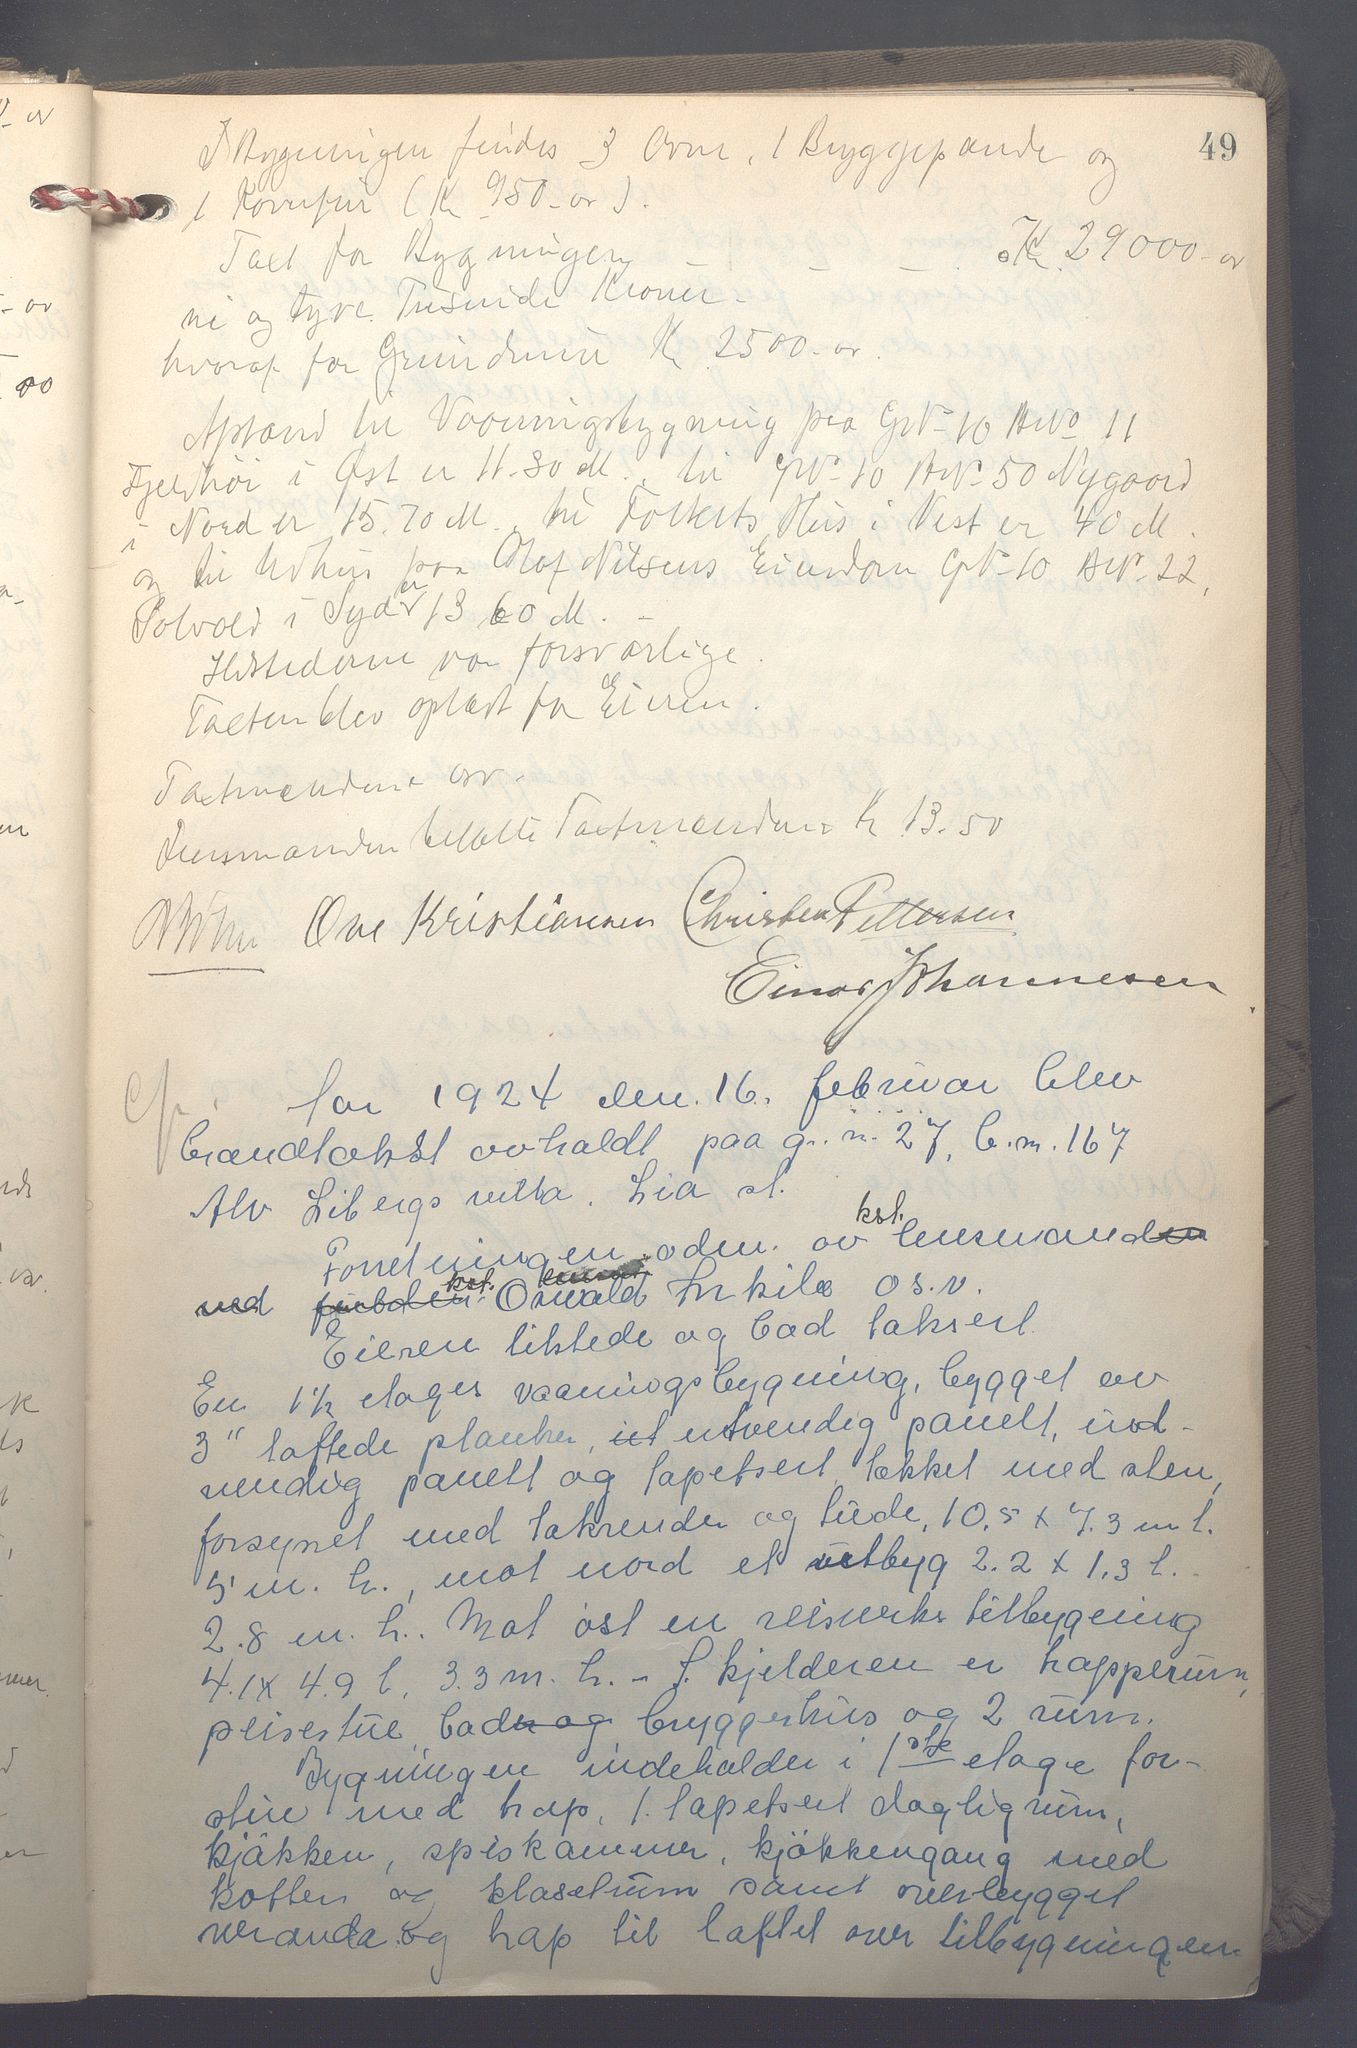 49
I Bygningen findes 3 Ovne, 1 Bryggepande og
1 Komfur (Kr 950-ør).
Taxt for Bygningen - - - - Kr. 29000-ør
ni og tyve Tusinde Kroner -
hvoraf for Grundmur Kr 2500-ør.
Afstand til Vaaningsbygning paa GNo 10 BNo 11
Fjeldhöi i Øst er 11.30 M., til GNo 10 BNo 50 Nygaard
i Nord er 15.70 M., til Folkets Hus i Vest er 40 M.
og til Udhus paa Olaf Nilsens Eiendom GNo 10 BNo 22,
Solvold i Syd er 13.60 M. -
Ildstederne var forsvarlige.
Taxten blev oplæst for Eieren.
Taxtmændene osv.
Lensmanden betalte Taxtmændene Kr 13.50
Ove Kristiansen Christen Pettersen
Einar Johannesen
Aar 1924 den 16. februar blev
brandtakst avholdt paa gr. n. 27, b.n. 167
Alv Libergs villa. Lia st.
Forretningen adm. av kst. lensmanden
ved kst. Oswald Inkilæ o.s.v.
Eieren tilstede og bad taksert
En 1½ etages vaaningsbygning, bygget av
3" laftede planker, ut utvendig panelt, ind-
vendig panelt og tapetsert, tækket med sten,
forsynet med takrender og lude, 10.5 x 7.3 m l.
5 m. h., mot nord et utbyg 2.2 x 1.3 l.
2.8 m. h.. Mot øst en reisverks tilbygning
4.1 x 4.9 l, 3.3 m. h. - I kjelderen er trapperum,
peisestue, bad og bryggerhus og 2 rum.
Bygningen indeholder i 1ste etage for-
stue med trap, 1 tapetsert dagligrum,
kjøkken, spiskammer, kjøkkengang med
kott og klosetrum samt overbygget
veranda og trap til loftet over tilbygningen